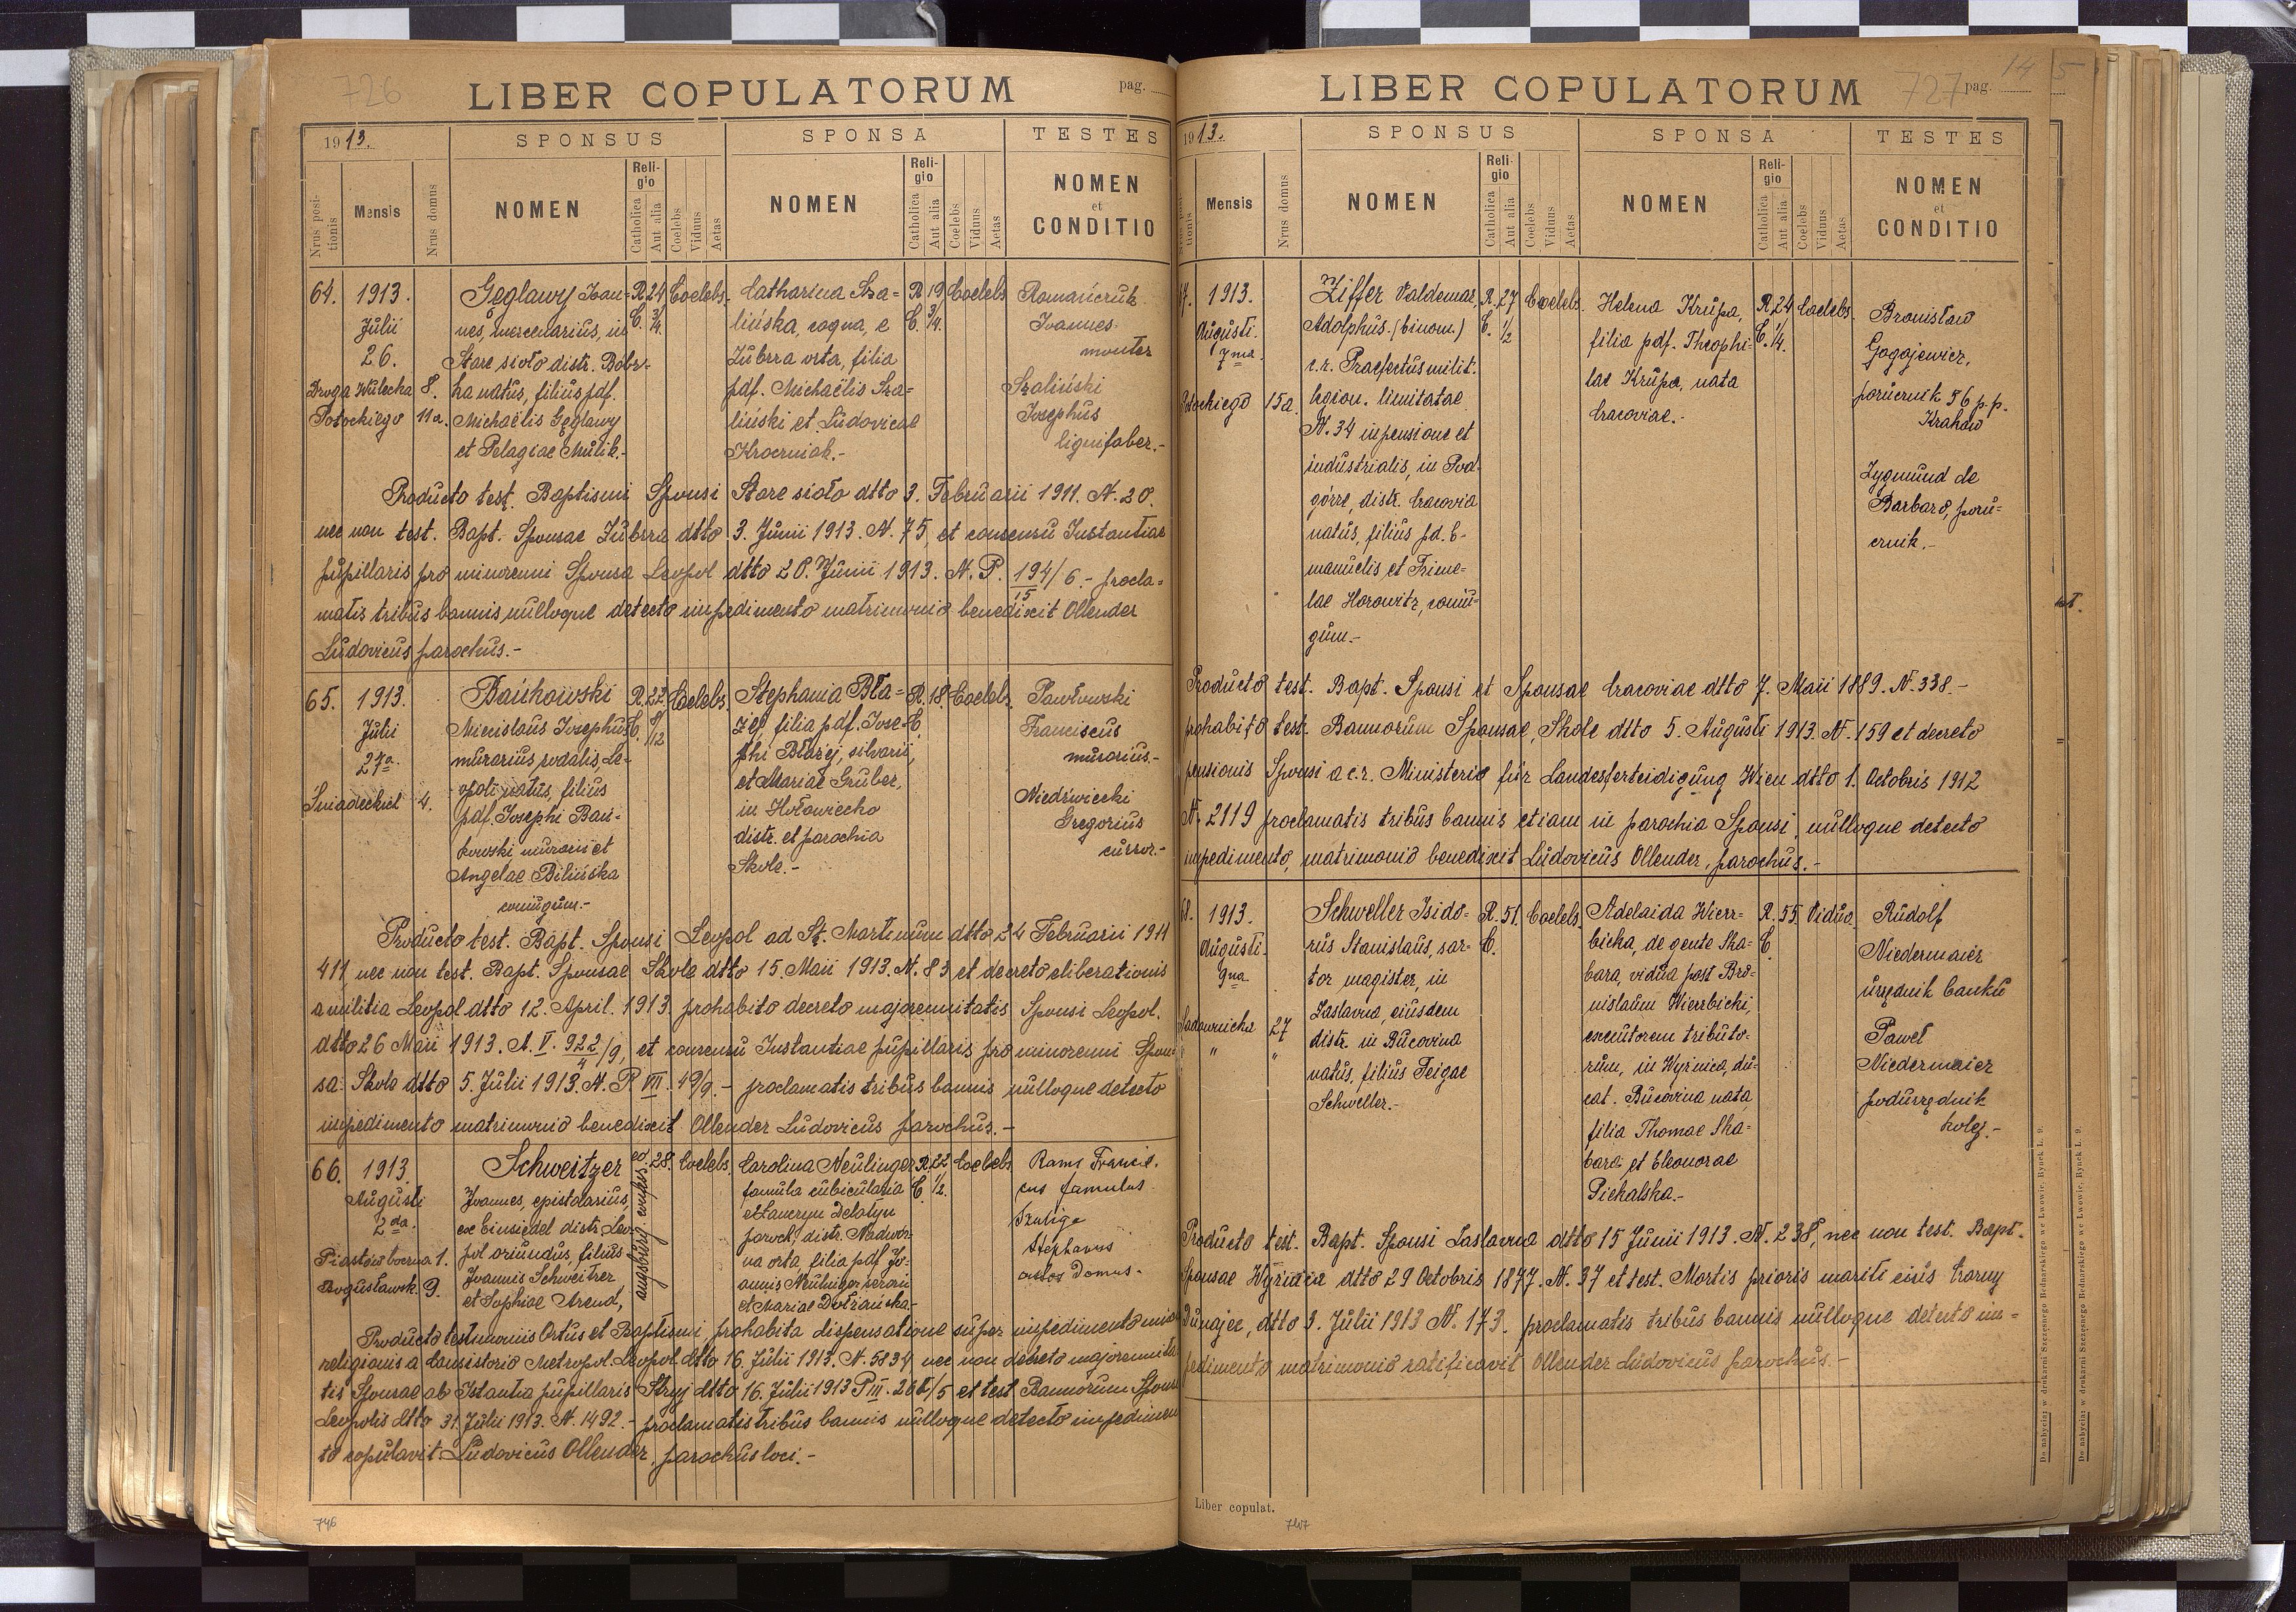 726
LIBER COPULATORUM
pag.
1913.
SPONSUS
SPONSA
TESTES
Nrus positionis
Mensis
Nrus domus
NOMEN
Religio
Catholica
Aut alia
Coelebs
Viduus
Aetas
NOMEN
Religio
Catholica
Aut alia
Coelebs
Viduus
Aetas
NOMEN
et
CONDITIO
64.
1913.
Julii
26.
Droga Wulecka 8.
Potockiego 11a.
Gęglawy Ioan=
nes, mercenarius, in
Stare sioło distr. Bóbr=
ka natus, filius pdf.
Michaëlis Gęglawy
et Pelagiae Mulik.-
R. C.
24 3/4
Coelebs.
Catharina Sza=
lińska, coqua, e
Zubrza orta, filia
pdf. Michaëlis Sza=
liński et Ludovicae
Kroczniak.-
R. C.
19 3/4.
Coelebs
Romańczuk
Ioannes
monter
Szaliński
Iosephus
lignifaber.-
Producto test. Baptismi Sponsi Stare sioło dtto 3. Februarii 1911. N. 20.
nec non test. Bapt. Sponsae Zubrza dtto 3. Junii 1913. N. 75, et consensu Instantiae
pupillaris pro minorenni Sponsa Leopol dtto 20. Junii 1913. N. P. 194/15/6.- procla=
matis tribus bannis nulloque detecto impedimento matrimonio benedixit Ollender
Ludovicus parochus.-
65.
1913.
Julii
27a.
Śniadeckich 4.
Bańkowski
Miecislaus Iosephus
murarius sodalis, Le=
opoli natus, filius
pdf. Iosephi Bań=
kowski murarii et
Angelae Bilińska
coniugum.-
R. C.
22 8/12
Coelebs.
Stephania Bła=
żej, filia pdf. Iose=
phi Błażej, silvarii,
et Mariae Gruber,
in Hołowiecko
distr. et parochia
Skole.-
R. C.
18.
Coelebs.
Pawłowski
Franciscus
murarius.-
Niedźwiecki
Gregorius
cursor.-
Producto test. Bapt. Sponsi Leopol ad St. Martinum dtto 24 Februarii 1911
411, nec non test. Bapt. Sponsae Skole dtto 15. Maii 1913. N. 83 et decreto eliberationis
a militia Leopol dtto 12. April. 1913. prohabito decreto majorennitatis Sponsi Leopol.
dtto 26 Maii 1913. A. V. 922/4/9, et consensu Instantiae pupillaris pro minorenni Spon=
sa: Skole dtto 5. Julii 1913. N. P. VII. 49/9.- proclamatis tribus bannis nulloque detecto
impedimento matrimonio benedixit Ollender Ludovicus parochus.-
66.
1913.
Augusti
2da.
Piastów boczna 1.
Bogusławsk. 9.
Schweitzer
Joannes, epistolarius,
ex Einsiedel distr. Leo=
pol oriundus, filius
Joannis Schweitzer
et Sophiae Arend,
augsburg. confess.
28.
Coelebs.
Carolina Neulinger
famula cubicularia
ex Laweryn Delatyn
paroch. distr. Nadwór
na orta, filia pdf Jo=
annis Neulinger
et Mariae Dolżańska-
R. C.
22 1/2.
Coelebs.
Rams Francis.
cus famulus
Szuliga
Stephanus
custos Domus-
Producto testimoniis Ortus et Baptismi prohabita dispensatione super impedimento
religionis a Consistorio Metropol. Leopol. dtto 16. Julii 1913. N. 5834 nec non decreto majorennita
tis Sponsae ab Istantia pupillaris Stryj dtto 16. Julii 1913 et test. Bannorum Spons
Leopolis dtto 31. Julii 1913. N. 1492.- proclamatis tribus bannis nulloque detecto impedimen
to copulavit Ludovicus Ollender, parochus loci.-
746
LIBER COPULATORUM
727
pag.
14
5
1913.
SPONSUS
SPONSA
TESTES
tionis
Mensis
Nrus domus
NOMEN
Religio
Catholica
Aut alia
Coelebs
Viduus
Aetas
NOMEN
Religio
Catholica
Aut alia
Coelebs
Viduus
Aetas
NOMEN
et
CONDITIO
7.
1913.
Augusti.
7ma.
Potockiego 15a.
Ziffer Valdemar,
Adolphus. (binom.)
c.r. Praefectus milit.
legion. limitatae
N. 34 in pensione et
industrialis, in Pod=
górze, distr. Cracovia
natus, filius pd. E=
manuelis et Frime=
tae Horowitz, coniu=
gum.-
R. C.
27 1/2
Coelebs.
Helena Krupa,
filia pdf. Theophi=
lae Krupa, nata
Cracoviae.-
R. C.
24 1/4.
Coelebs.
Bronisław
Gogojewicz,
porucznik 56 p.p.
Kraków
Zygmund de
Barbaro, poru=
cznik.-
Producto test. Bapt. Sponsi et Sponsae Cracoviae dtto 7. Maii 1889. N. 338.-
prohabito test. Bannorum Sponsae, Skole dtto 5. Augusti 1913. N. 159 et decreto
pensionis Sponsi a c.r. Ministerio für Landesferteidigung Wien dtto 1. Octobris 1912
N. 2119 proclamatis tribus bannis etiam in parochia Sponsi, nulloque detecto
impedimento, matrimonio benedixit Ludovicus Ollender, parochus.-
68.
1913.
Augusti.
9na.
Sadownicka 27
" "
Schweller Isido=
rus Stanislaus, sar=
tor magister, in
Zastavna, eiusdem
distr. in Bucovina
natus, filius Feigae
Schweller.-
R. C.
51.
Coelebs.
Adelaida Wierz=
bicka, de gente Ska=
bara, vidua post Bro=
nislaum Wierzbicki,
executorem tributo=
rum, in Wyżnica, du=
cat. Bucovina nata,
filia Thomae Ska=
bara et Eleonorae
Piekalska.-
R. C.
55.
Viduo.
Rudolf
Niedermaier
urzędnik banku
Paweł
Niedermaier
podurzędnik
kolej.-
Producto test. Bapt. Sponsi Zastavna dtto 15 Junii 1913. N. 238, nec non test. Bapt.
Sponsae Wyżnica dtto 29 Octobris 1877. N. 37 et test. Mortis prioris mariti eius Czarny
Dunajec, dtto 3. Julii 1913 N. 173. proclamatis tribus bannis nulloque detecto im=
pedimento matrimonio ratificavit Ollender Ludovicus parochus.-
Liber copulat.
747
Do nabycia: w drukarni Szczęsnego Bednarskiego we Lwowie, Rynek L. 9.
Do nabycia: w drukarni Szczęsnego Bednarskiego we Lwowie, Rynek L. 9.